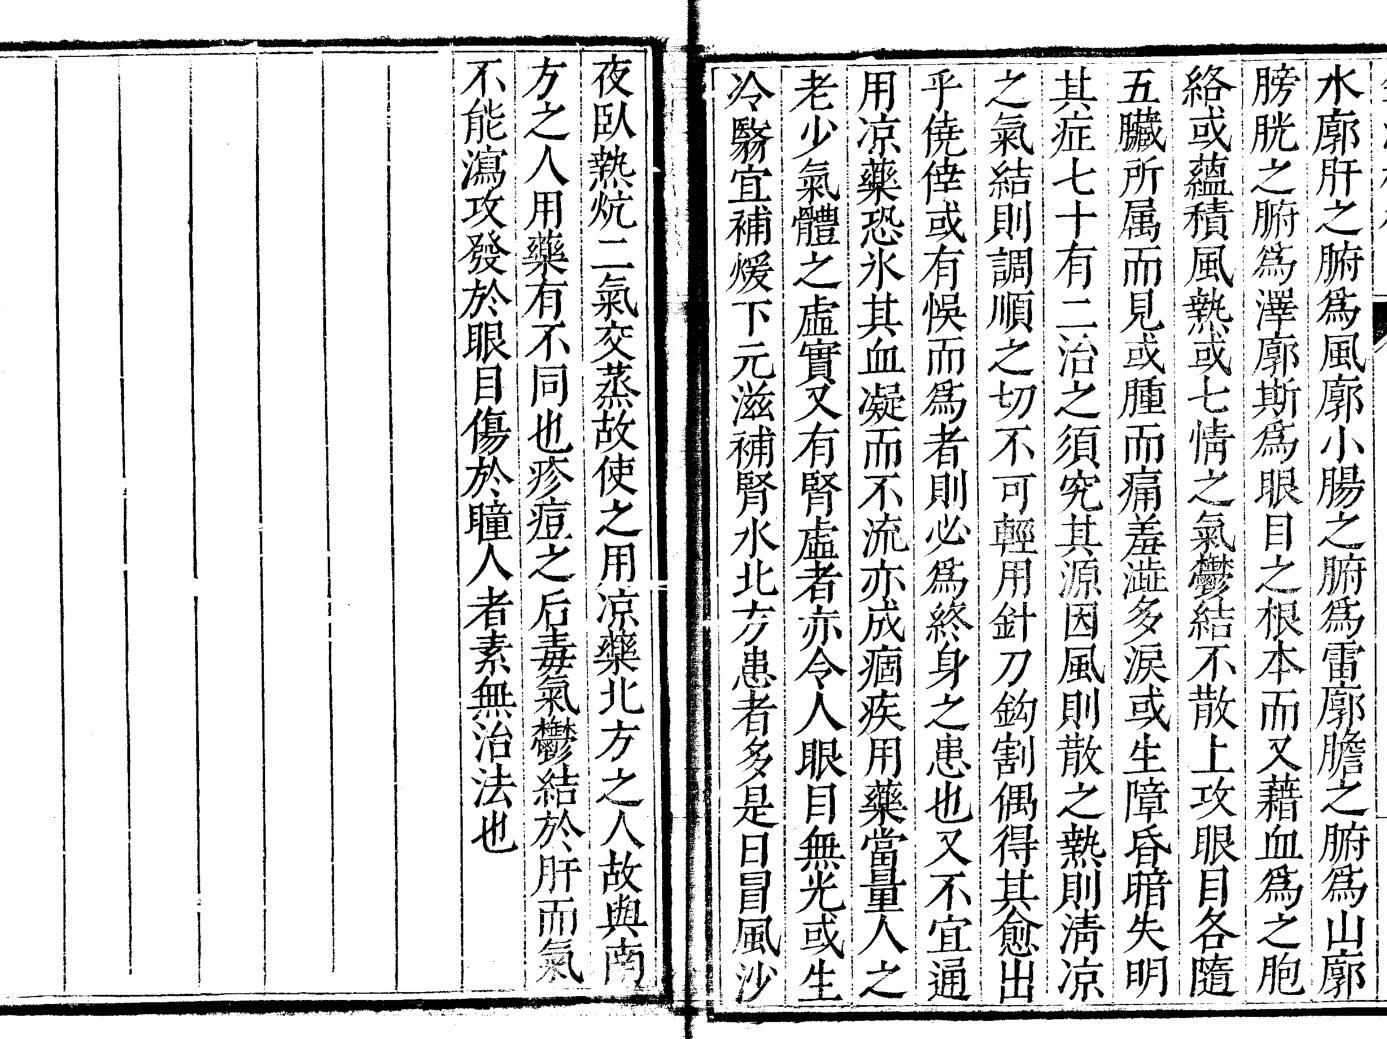 水廓肝之腑爲風廓小腸之腑爲雷廓膽之腑爲山廓
膀胱之腑爲澤廓斯爲眼目之根本而又藉血爲之胞
絡或蘊積風熱或七情之氣鬱結不散上攻眼目各隨
五臟所属而見或腫而痛羞澁多淚或生障昏暗失明
其症七十有二治之須究其源因風則散之熱則淸凉
之氣結則調順之切不可輕用針刀鈎割偶得其愈出
乎僥倖或有悞而爲者則必爲終身之患也又不宜通
用凉藥恐氷其血凝而不流亦成痼疾用藥當量人之
老少氣體之虛實又有腎虛者亦令人眼目無光或生
冷翳宜補煖下元滋補腎水北方患者多是日冒風沙
夜臥熱炕二氣交蒸故使之用凉藥北方之人故與南
方之人用藥有不同也疹痘之后毒氣鬱結於肝而氣
不能瀉攻發於眼目傷於瞳人者素無治法也